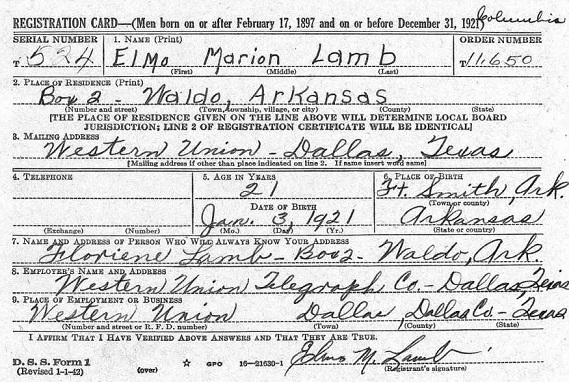 Columbia
REGISTRATION CARD—(Men born on or after February 17, 1897 and on or before December 31, 1921)
SERIAL NUMBER 1. NAME (Print) ORDER NUMBER
T 524 Elmo Marion Lamb T 11,650
(First) (Middle) (Last)
2. PLACE OF RESIDENCE (Print)
Box 2 - Waldo, Arkansas
(Number and street) (Town, township, village, or city) (County) (State)
[THE PLACE OF RESIDENCE GIVEN ON THE LINE ABOVE WILL DETERMINE LOCAL BOARD
JURISDICTION; LINE 2 OF REGISTRATION CERTIFICATE WILL BE IDENTICAL]
3. MAILING ADDRESS
Western Union - Dallas, Texas
[Mailing address if other than place indicated on line 2. If same insert word same]
4. TELEPHONE 5. AGE IN YEARS 6. PLACE OF BIRTH
21 Ft. Smith, Ark.
DATE OF BIRTH (Town or county)
Jan. 3, 1921 Arkansas
(Exchange) (Number) (Mo.) (Day) (Yr.) (State or country)
7. NAME AND ADDRESS OF PERSON WHO WILL ALWAYS KNOW YOUR ADDRESS
Floriene Lamb - Box 2 - Waldo, Ark.
8. EMPLOYER'S NAME AND ADDRESS
Western Union Telegraph Co - Dallas Texas
9. PLACE OF EMPLOYMENT OR BUSINESS
Western Union Dallas, Dallas Co - Texas
(Number and street or R. F. D. number) (Town) (County) (State)
I AFFIRM THAT I HAVE VERIFIED ABOVE ANSWERS AND THAT THEY ARE TRUE.
D. S. S. Form 1
(Revised 1-1-42) (over) ☆ GPO 16-21630-1 Elmo M. Lamb
(Registrant's signature)